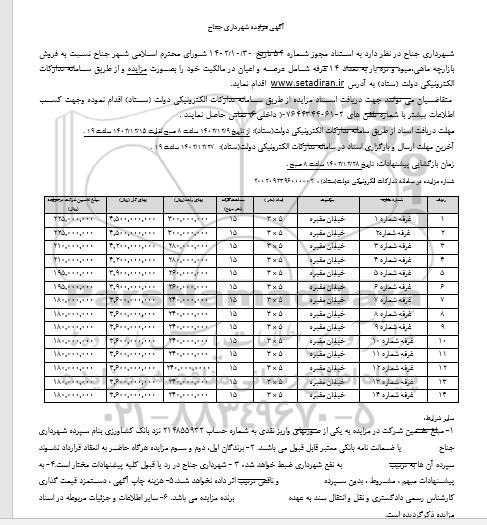 آگهی مزایده شهرداری جناح
شهرداری جناح در نظر دارد به استناد مجوز شماره ۵۴ تاریخ ۱۴۰۲/۱۰/۳۰ شورای محترم اسلامی شهر جناح نسبت به فروش
بازارچه ماهی،میوه و تره بار به تعداد ۱۴ غرفه شامل عرصه و اعیان در مالکیت خود را بصورت مزایده و از طریق سامانه تدارکات
الکترونیکی دولت (ستاد) به آدرس www.setadiran.ir اقدام نماید.
متقاضیان می توانند جهت دریافت اسناد مزایده از طریق سامانه تدارکات الکترونیکی دولت (ستاد) اقدام نموده وجهت کسب
اطلاعات بیشتر با شماره تلفن های ۲-۰۷۶۴۴۳۴۴۰۶۱ داخلی تماس حاصل نمایند .
مهلت دریافت اسناد از طریق سامانه تدارکات الکترونیکی دولت(ستاد): از تاریخ ۱۴۰۲/۱۲/۹ ساعت ۸ صبح لغایت ۱۴۰۲/۱۲/۱۵ ساعت ۱۹ .
آخرین مهلت ارسال و بارگزاری اسناد در سامانه تدارکات الکترونیکی دولت(ستاد): ۱۴۰۲/۱۲/۲۷ ساعت ۱۹ .
زمان بازگشایی پیشنهادات: تاریخ ۱۴۰۲/۱۲/۲۸ ساعت ۸ صبح .
شماره مزایده در سامانه تدارکات الکترونیکی دولت(ستاد)
ردیف شماره موقعیت ابعاد (متر) مساحت (متر مربع) بهای پایه (ریال) بهای کل (ریال) مبلغ تضمین شرکت درمزایده (ریال)
۱ غرفه شماره ۱ خیابان مقبره ۵ × ۳ ۱۵ ۳۰۰,۰۰۰,۰۰۰ ۴,۵۰۰,۰۰۰,۰۰۰ ۲۲۵,۰۰۰,۰۰۰
۲ غرفه شماره۲ خیابان مقبره ۵ × ۳ ۱۵ ۳۰۰,۰۰۰,۰۰۰ ۴,۵۰۰,۰۰۰,۰۰۰ ۲۲۵,۰۰۰,۰۰۰
۳ غرفه شماره ۳ خیابان مقبره ۵ × ۳ ۱۵ ۲۸۰,۰۰۰,۰۰۰ ۴,۲۰۰,۰۰۰,۰۰۰ ۲۱۰,۰۰۰,۰۰۰
۴ غرفه شماره ۴ خیابان مقبره ۵ × ۳ ۱۵ ۲۸۰,۰۰۰,۰۰۰ ۴,۲۰۰,۰۰۰,۰۰۰ ۲۱۰,۰۰۰,۰۰۰
۵ غرفه شماره ۵ خیابان مقبره ۵ × ۳ ۱۵ ۲۶۰,۰۰۰,۰۰۰ ۳,۹۰۰,۰۰۰,۰۰۰ ۱۹۵,۰۰۰,۰۰۰
۶ غرفه شماره ۶ خیابان مقبره ۵ × ۳ ۱۵ ۲۶۰,۰۰۰,۰۰۰ ۳,۹۰۰,۰۰۰,۰۰۰ ۱۹۵,۰۰۰,۰۰۰
۷ غرفه شماره ۷ خیابان مقبره ۵ × ۳ ۱۵ ۲۴۰,۰۰۰,۰۰۰ ۳,۶۰۰,۰۰۰,۰۰۰ ۱۸۰,۰۰۰,۰۰۰
۸ غرفه شماره ۸ خیابان مقبره ۵ × ۳ ۱۵ ۲۴۰,۰۰۰,۰۰۰ ۳,۶۰۰,۰۰۰,۰۰۰ ۱۸۰,۰۰۰,۰۰۰
۹ غرفه شماره ۹ خیابان مقبره ۵ × ۳ ۱۵ ۲۴۰,۰۰۰,۰۰۰ ۳,۶۰۰,۰۰۰,۰۰۰ ۱۸۰,۰۰۰,۰۰۰
۱۰ غرفه شماره ۱۰ خیابان مقبره ۵ × ۳ ۱۵ ۲۴۰,۰۰۰,۰۰۰ ۳,۶۰۰,۰۰۰,۰۰۰ ۱۸۰,۰۰۰,۰۰۰
۱۱ غرفه شماره ۱۱ خیابان مقبره ۵ × ۳ ۱۵ ۲۴۰,۰۰۰,۰۰۰ ۳,۶۰۰,۰۰۰,۰۰۰ ۱۸۰,۰۰۰,۰۰۰
۱۲ غرفه شماره ۱۲ خیابان مقبره ۵ × ۳ ۱۵ ۲۴۰,۰۰۰,۰۰۰ ۳,۶۰۰,۰۰۰,۰۰۰ ۱۸۰,۰۰۰,۰۰۰
۱۳ غرفه شماره ۱۳ خیابان مقبره ۵ × ۳ ۱۵ ۲۴۰,۰۰۰,۰۰۰ ۳,۶۰۰,۰۰۰,۰۰۰ ۱۸۰,۰۰۰,۰۰۰
۱۴ غرفه شماره ۱۴ خیابان مقبره ۵ × ۳ ۱۵ ۲۴۰,۰۰۰,۰۰۰ ۳,۶۰۰,۰۰۰,۰۰۰ ۱۸۰,۰۰۰,۰۰۰
۰۲۱-۸۸۳۴۹۶۷۰-۵
سایر شرایط:
۱- مبلغ تضمین شرکت در مزایده به یکی از صورتهای واریز نقدی به شماره حساب ۲۱۴۸۵۵۹۳۲ نزد بانک کشاورزی بنام سپرده شهرداری
جناح یا ضمانت نامه بانکی معتبر قابل قبول می باشد. ۲- برندگان اول، دوم و سوم مزایده هرگاه حاضر به انعقاد قرارداد نشوند
سپرده آن ها به ترتیب به نفع شهرداری ضبط خواهد شد. ۳ - شهرداری جناح در رد یا قبول کلیه پیشنهادات مختار است.۴- به
پیشنهادات مبهم ، مشروط ، بدون سپرده و ناقص ترتیب اثر داده نخواهد شد.۵- هزینه چاپ آگهی ، دستمزد قیمت گذاری
کارشناس رسمی دادگستری و نقل و انتقال سند به عهده برنده مزایده می باشد. ۶- سایر اطلاعات و جزئیات مربوطه در اسناد
مزایده ذکرگردیده است.